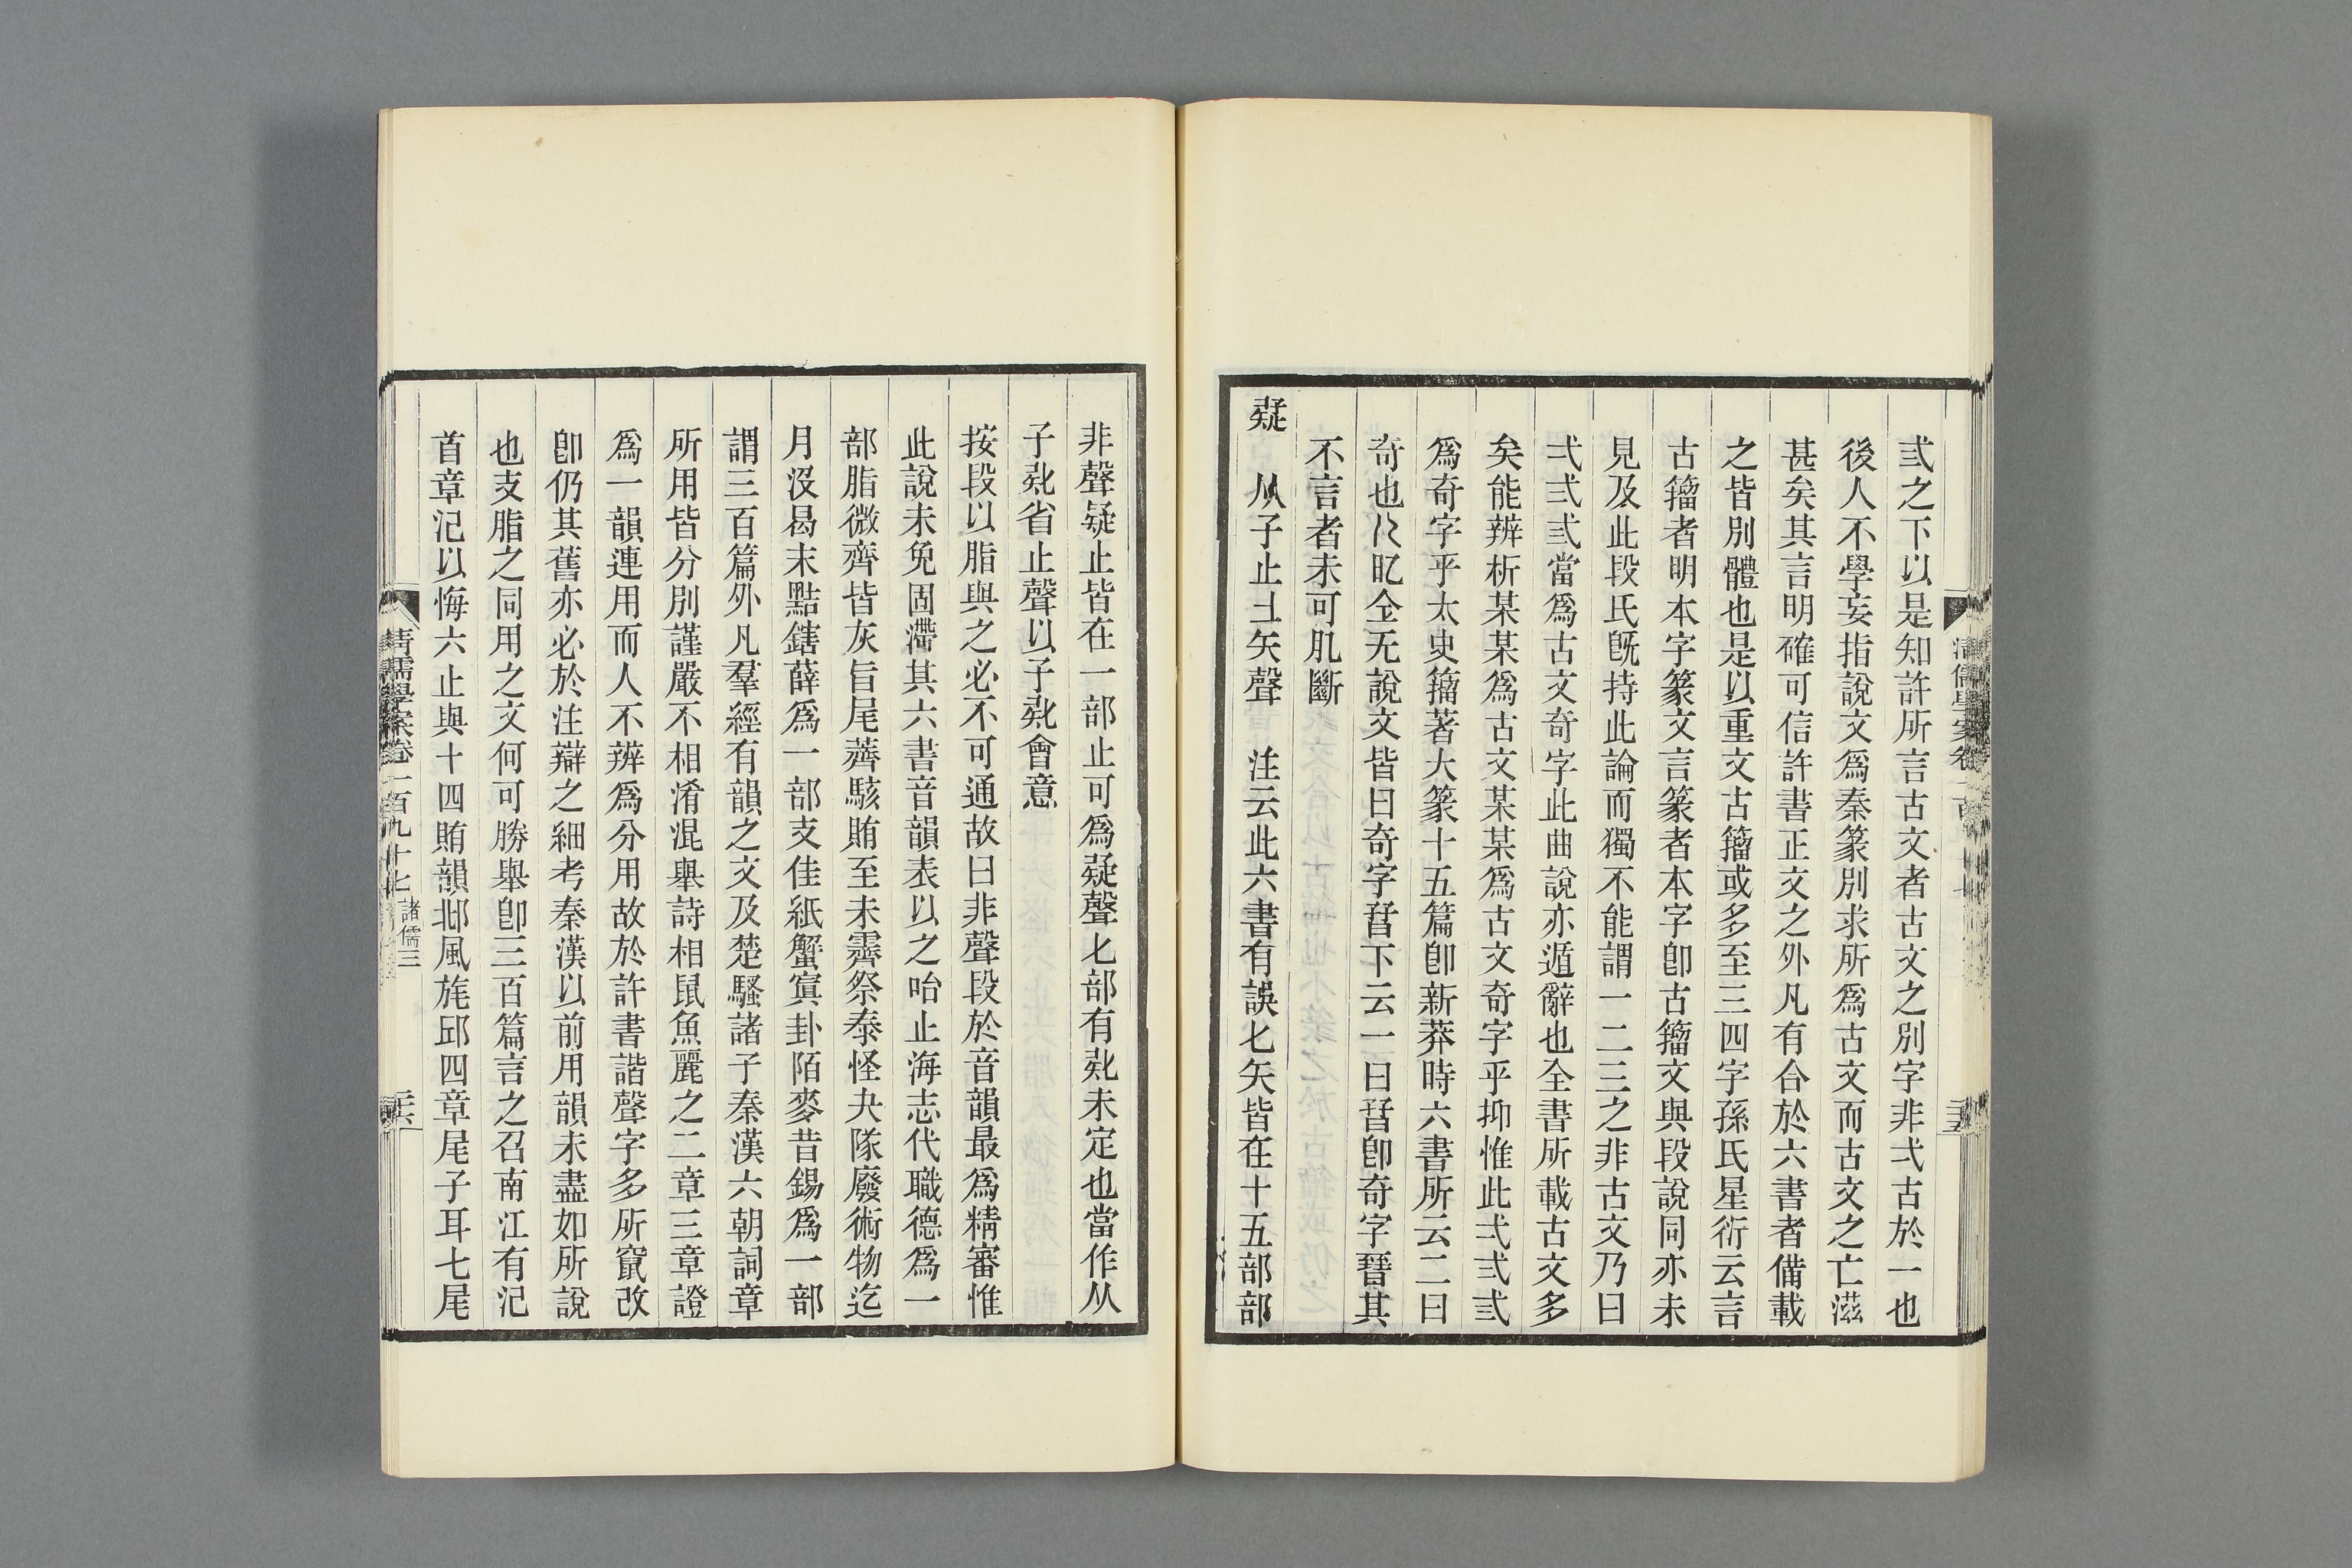 弎之下以是知許所言古文者古文之別字非弌古於一也
後人不學妄指說文爲秦篆別求所爲古文而古文之亡滋
甚矣其言明確可信許書正文之外凡有合於六書者備載
之皆別體也是以重文古籀或多至三四字孫氏星衍云言
古籀者明本字篆文言篆者本字卽古籀文與段說同亦未
見及此段氏旣持此論而獨不能謂一二三之非古文乃曰
弌弍弎當爲古文奇字此曲說亦遁辭也全書所載古文多
矣能辨析某某爲古文某某爲古文奇字乎抑惟此弌弍弎
爲奇字乎太史籀著大篆十五篇卽新莽時六書所云二曰
奇也仺无說文皆曰奇字暜下云一曰暜卽奇字晉其
不言者未可肌斷
疑 从子止㠯矢聲 注云此六書有誤匕矢皆在十五部部
非聲疑止皆在一部止可爲疑聲匕部有𠤕未定也當作从
子𠤕省止聲以子𠤕會意
按段以脂與之必不可通故曰非聲段於音韻最爲精審惟
此說未免固滯其六書音韻表以之咍止海志代職德爲一
部脂微齊皆灰旨尾薺駭賄至未霽祭泰怪夬隊廢術物迄
月沒曷末黠鎋薛爲一部支佳紙蟹寘卦陌麥昔錫爲一部
謂三百篇外凡羣經有韻之文及楚騷諸子秦漢六朝詞章
所用皆分別謹嚴不相淆混舉詩相鼠魚麗之二章三章證
爲一韻連用而人不辨爲分用故於許書諧聲字多所竄改
卽仍其舊亦必於注辯之細考秦漢以前用韻未盡如所說
也支脂之同用之文何可勝舉卽三百篇言之召南江有汜
首章汜以悔六止與十四賄韻邶風旄邱四章尾子耳七尾
清儒學案卷一百九十七 諸儒三